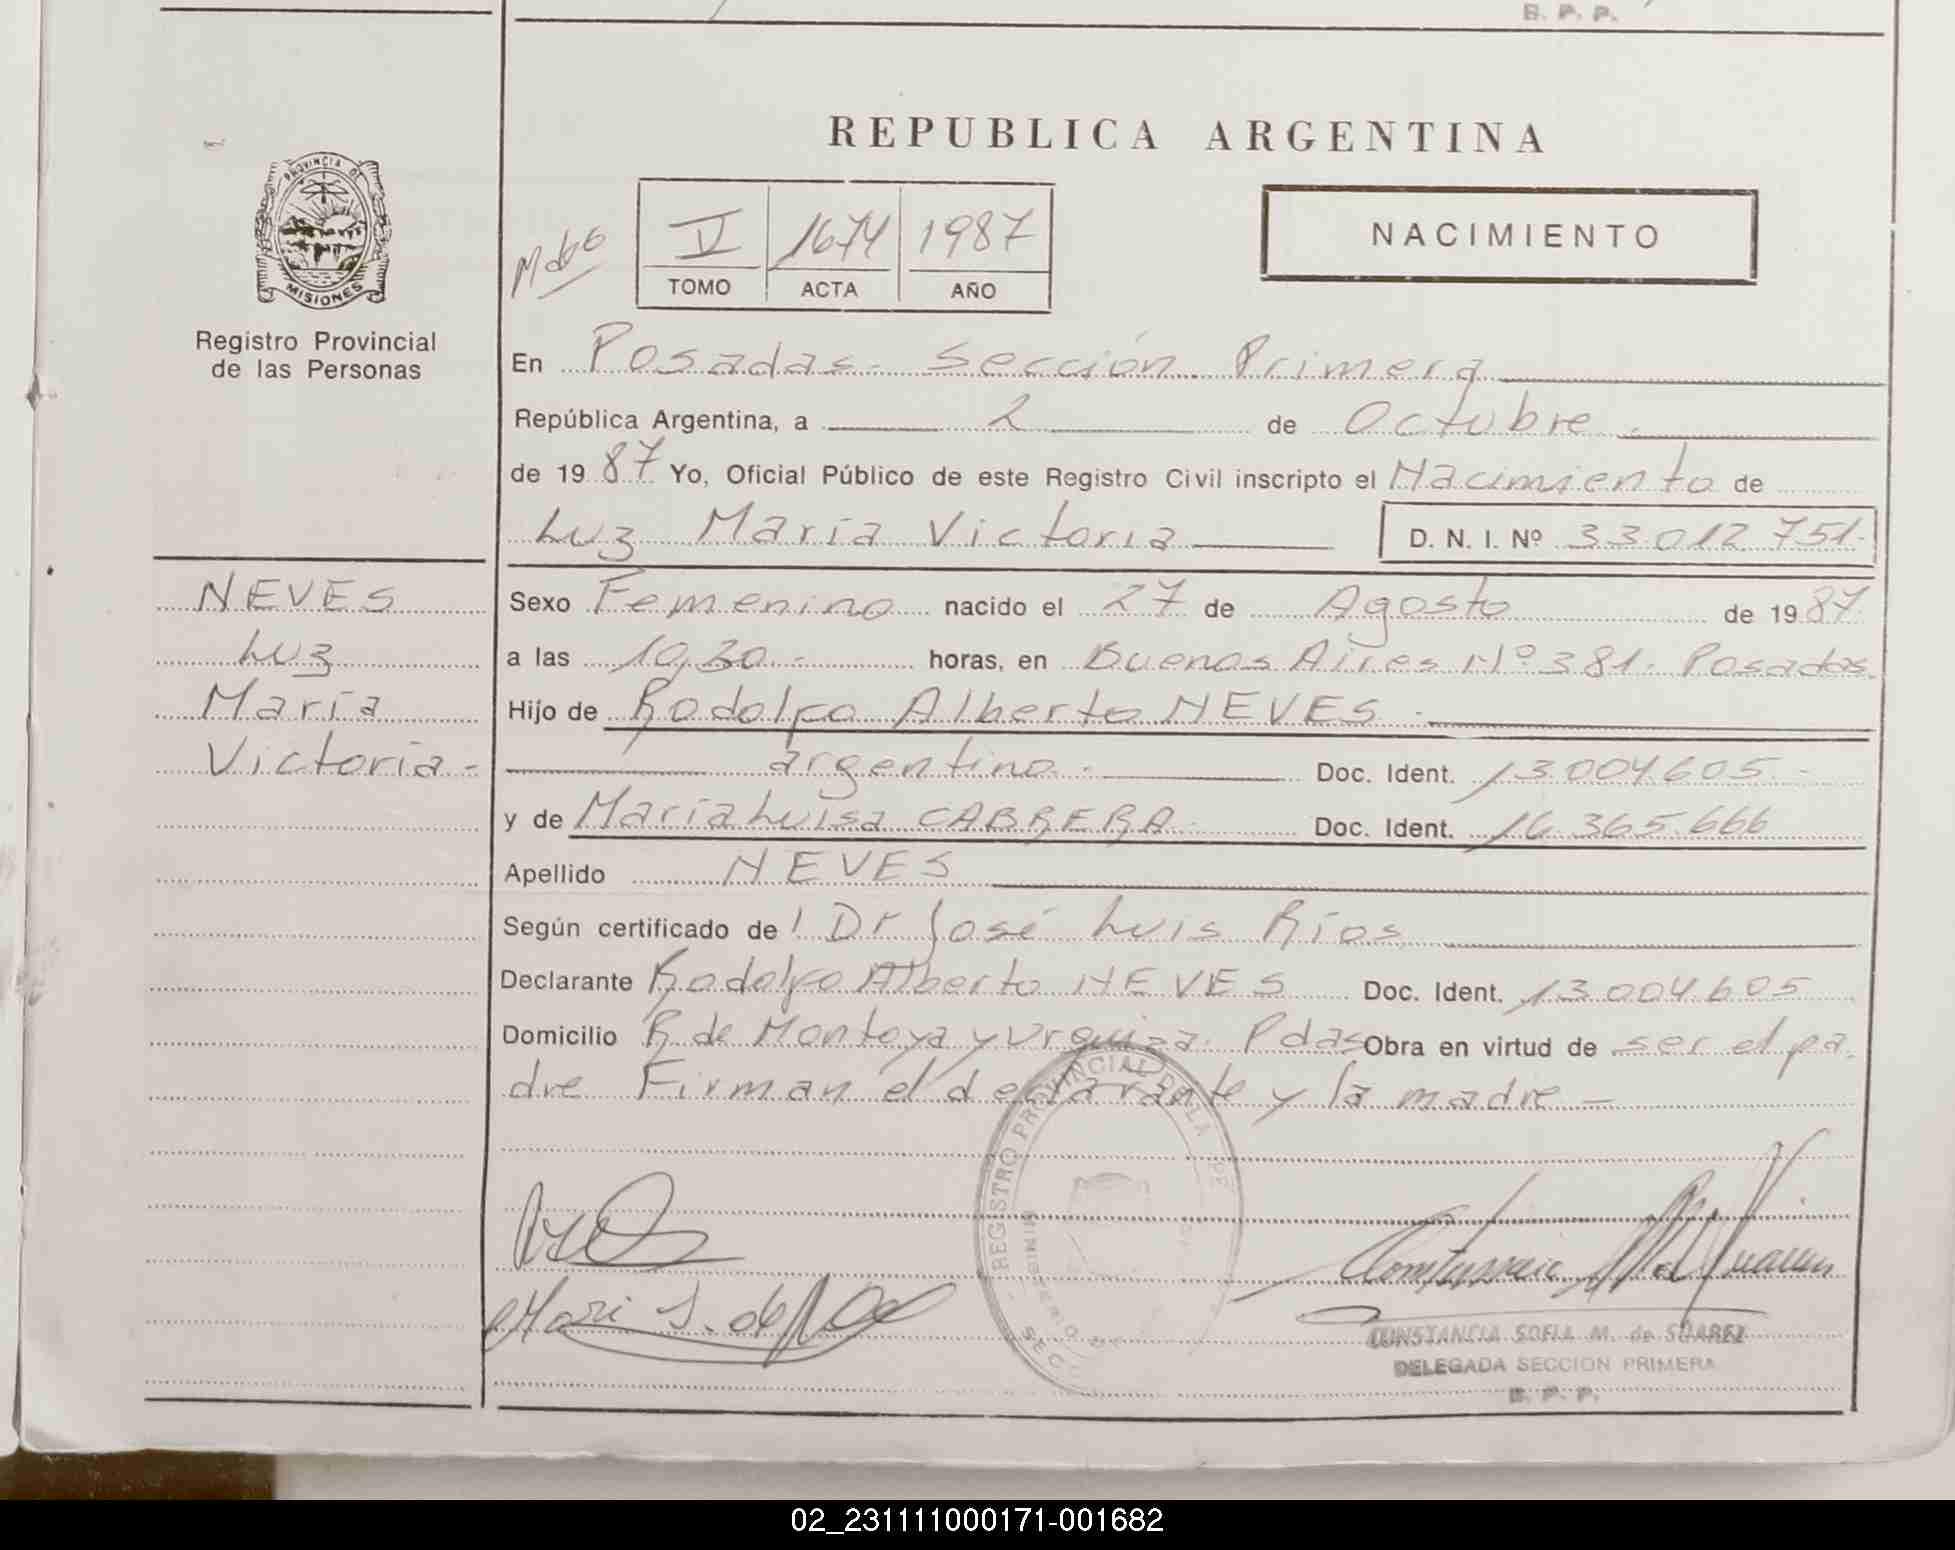 B. P. P.
REPUBLICA ARGENTINA
PROVINCIA DE
MISIONES
Registro Provincial
de las Personas
V 1674 1987
TOMO ACTA AÑO
NACIMIENTO
En Posadas - Sección Primera
República Argentina, a 2 de Octubre
de 1987 Yo, Oficial Público de este Registro Civil inscripto el Nacimiento de
Luz María Victoria D. N. I. Nº 33.012.751.-
NEVES
Luz
María
Victoria -
Sexo Femenino nacido el 27 de Agosto de 1987
a las 10,30.- horas, en Buenos Aires Nº 381. Posadas.
Hijo de Rodolfo Alberto NEVES.
argentino.- Doc. Ident. 13004605.-
y de María Luisa CABRERA. Doc. Ident. 16.365.666
Apellido NEVES
Según certificado de l Dr José Luis Ríos
Declarante Rodolfo Alberto NEVES Doc. Ident. 13004605
Domicilio R. de Montoya y Urquiza. Pdas Obra en virtud de ser el pa-
dre Firman el declarante y la madre -
REGISTRO PROVINCIAL DE LA PE
CONSTANCIA SOFIA M. de SUAREZ
DELEGADA SECCION PRIMERA
B. P. P.
02_231111000171-001682